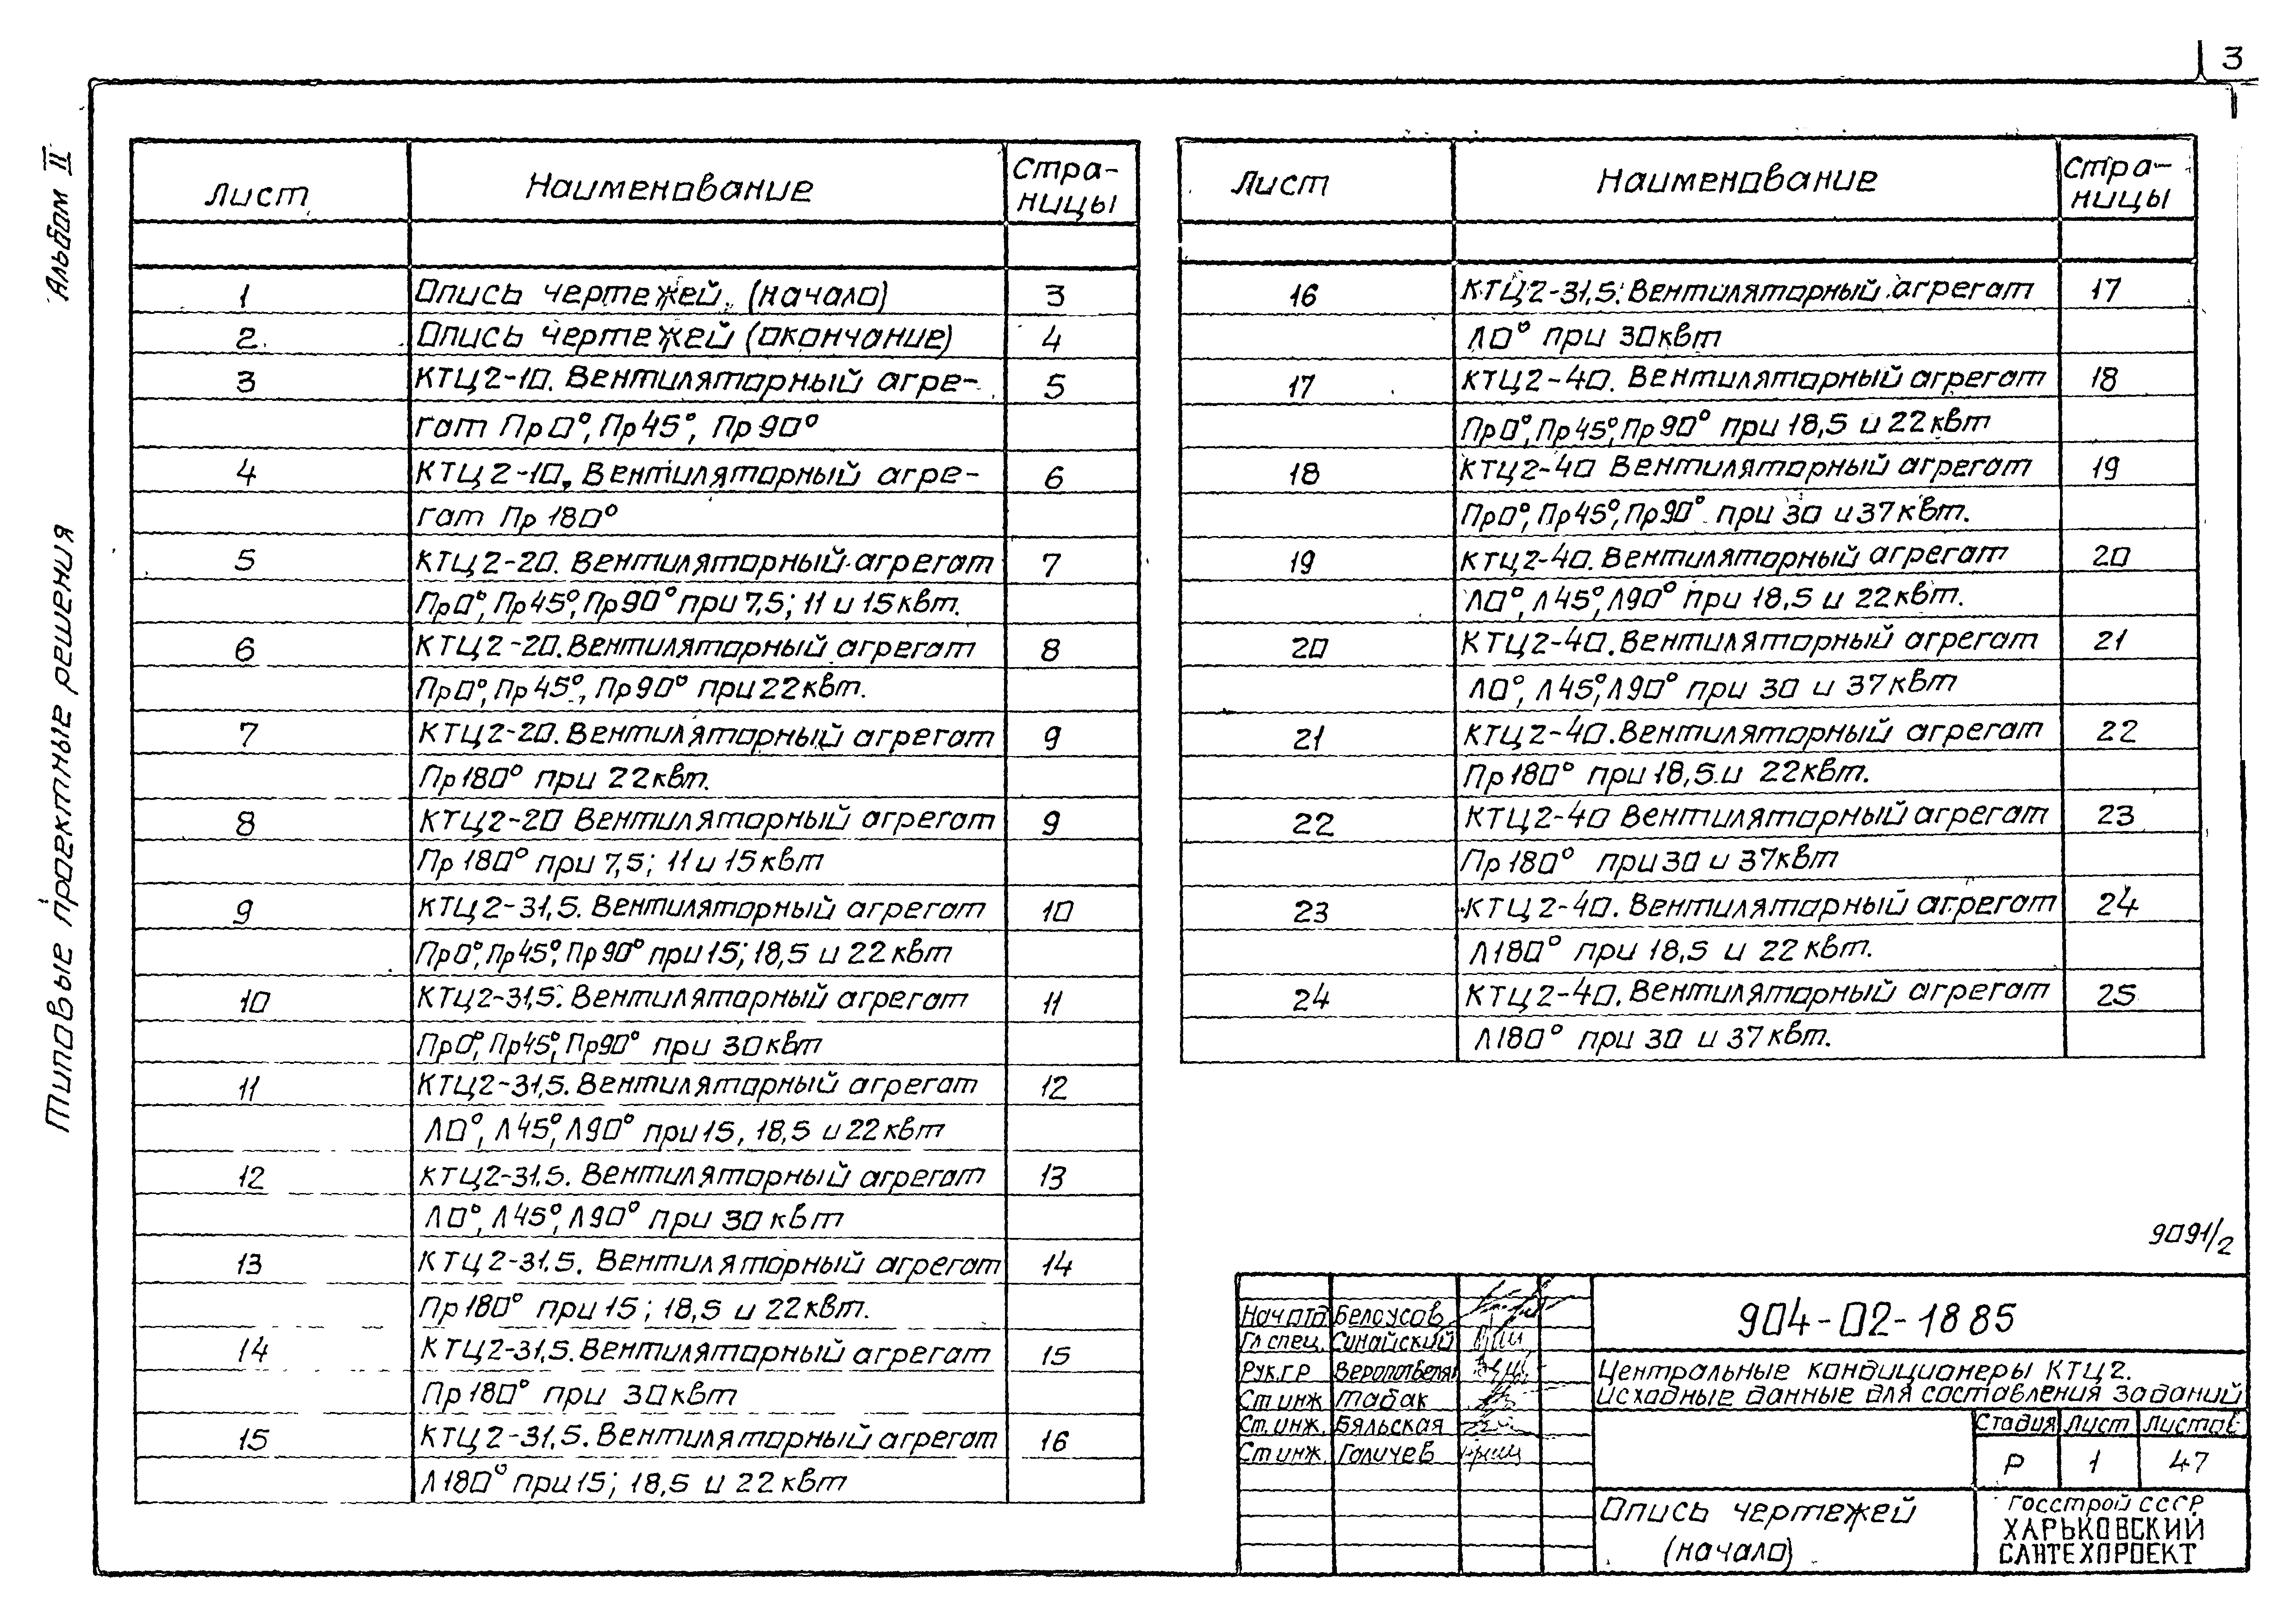 3
Альбом II
Типовые проектные решения
Лист Наименование Стра-
ницы
1 Опись чертежей. (начало) 3
2 Опись чертежей (окончание) 4
3 КТЦ2-10. Вентиляторный агре- 5
гат Пр0°, Пр45°, Пр90°
4 КТЦ2-10. Вентиляторный агре- 6
гат Пр 180°
5 КТЦ2-20. Вентиляторный агрегат 7
Пр0°, Пр45°, Пр90° при 7,5; 11 и 15квт.
6 КТЦ2-20. Вентиляторный агрегат 8
Пр0°, Пр45°, Пр90° при 22квт.
7 КТЦ2-20. Вентиляторный агрегат 9
Пр180° при 22квт.
8 КТЦ2-20 Вентиляторный агрегат 9
Пр 180° при 7,5; 11 и 15квт
9 КТЦ2-31,5. Вентиляторный агрегат 10
Пр0°, Пр45°, Пр90° при 15; 18,5 и 22квт
10 КТЦ2-31,5. Вентиляторный агрегат 11
Пр0°, Пр45°, Пр90° при 30квт
11 КТЦ2-31,5. Вентиляторный агрегат 12
Л0°, Л45°, Л90° при 15, 18,5 и 22квт
12 КТЦ2-31,5. Вентиляторный агрегат 13
Л0°, Л45°, Л90° при 30 квт
13 КТЦ2-31,5. Вентиляторный агрегат 14
Пр180° при 15; 18,5 и 22квт.
14 КТЦ2-31,5. Вентиляторный агрегат 15
Пр180° при 30квт
15 КТЦ2-31,5. Вентиляторный агрегат 16
Л180° при 15; 18,5 и 22квт
Лист Наименование Стра-
ницы
16 КТЦ2-31,5. Вентиляторный агрегат 17
Л0° при 30квт
17 КТЦ2-40. Вентиляторный агрегат 18
Пр0°, Пр45°, Пр90° при 18,5 и 22квт
18 КТЦ2-40 Вентиляторный агрегат 19
Пр0°, Пр45°, Пр90° при 30 и 37квт.
19 КТЦ2-40. Вентиляторный агрегат 20
Л0°, Л45°, Л90° при 18,5 и 22квт.
20 КТЦ2-40. Вентиляторный агрегат 21
Л0°, Л45°, Л90° при 30 и 37квт
21 КТЦ2-40. Вентиляторный агрегат 22
Пр180° при 18,5 и 22квт.
22 КТЦ2-40 Вентиляторный агрегат 23
Пр180° при 30 и 37квт
23 КТЦ2-40. Вентиляторный агрегат 24
Л180° при 18,5 и 22квт.
24 КТЦ2-40. Вентиляторный агрегат 25
Л180° при 30 и 37квт.
9091/2
Нач отд Белоусов
Гл спец. Синайский
Рук.гр
Ст инж Табак
Ст. инж. Бяльская
Ст инж. Галичев
904-02-1885
Центральные кондиционеры КТЦ2.
Исходные данные для составления заданий
Стадия Лист Листов
Р 1 47
Опись чертежей
(начало)
Госстрой СССР
ХАРЬКОВСКИЙ
САНТЕХПРОЕКТ